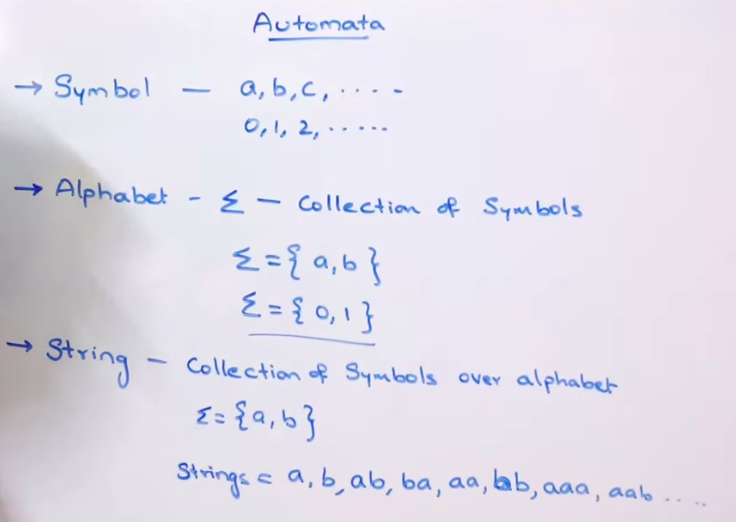 Automata
→ Symbol — a, b, c, .... -
0, 1, 2, .....
→ Alphabet - Σ — Collection of Symbols
Σ = { a, b }
Σ = { 0, 1 }
→ String — Collection of Symbols over alphabet
Σ = { a, b }
Strings = a, b, ab, ba, aa, bb, aaa, aab ....